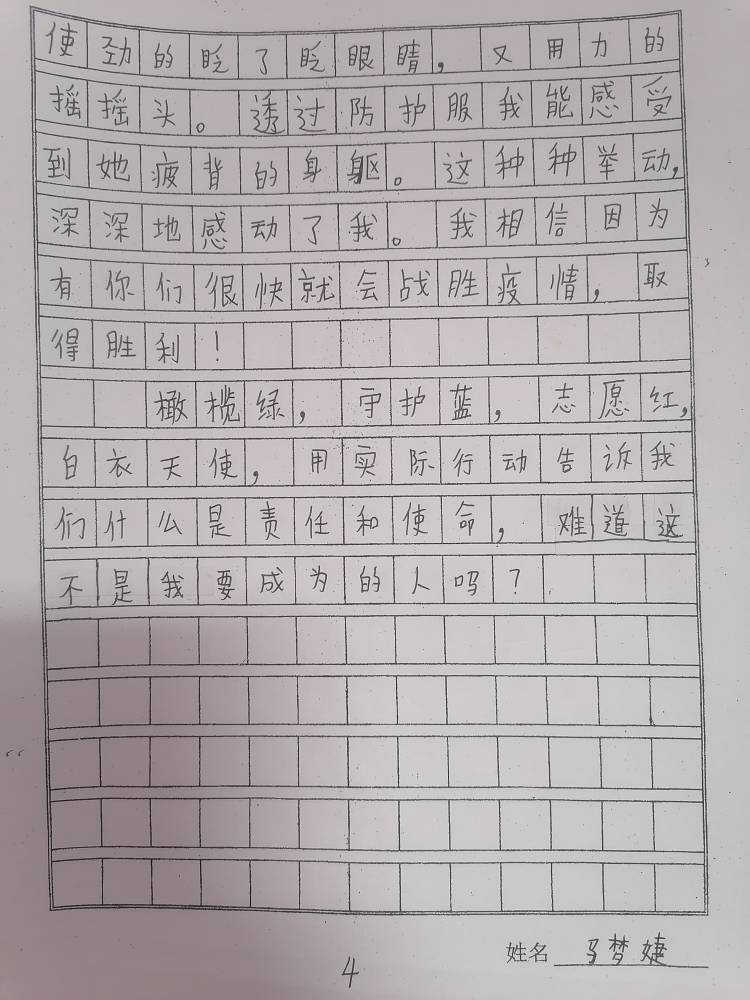 使劲的眨了眨眼睛，又用力的
摇摇头。透过防护服我能感受
到她疲背的身躯。这种种举动，
深深地感动了我。我相信因为
有你们很快就会战胜疫情，取
得胜利！
橄榄绿，守护蓝，志愿红，
白衣天使，用实际行动告诉我
们什么是责任和使命，难道这
不是我要成为的人吗？
姓名 马梦婕
4